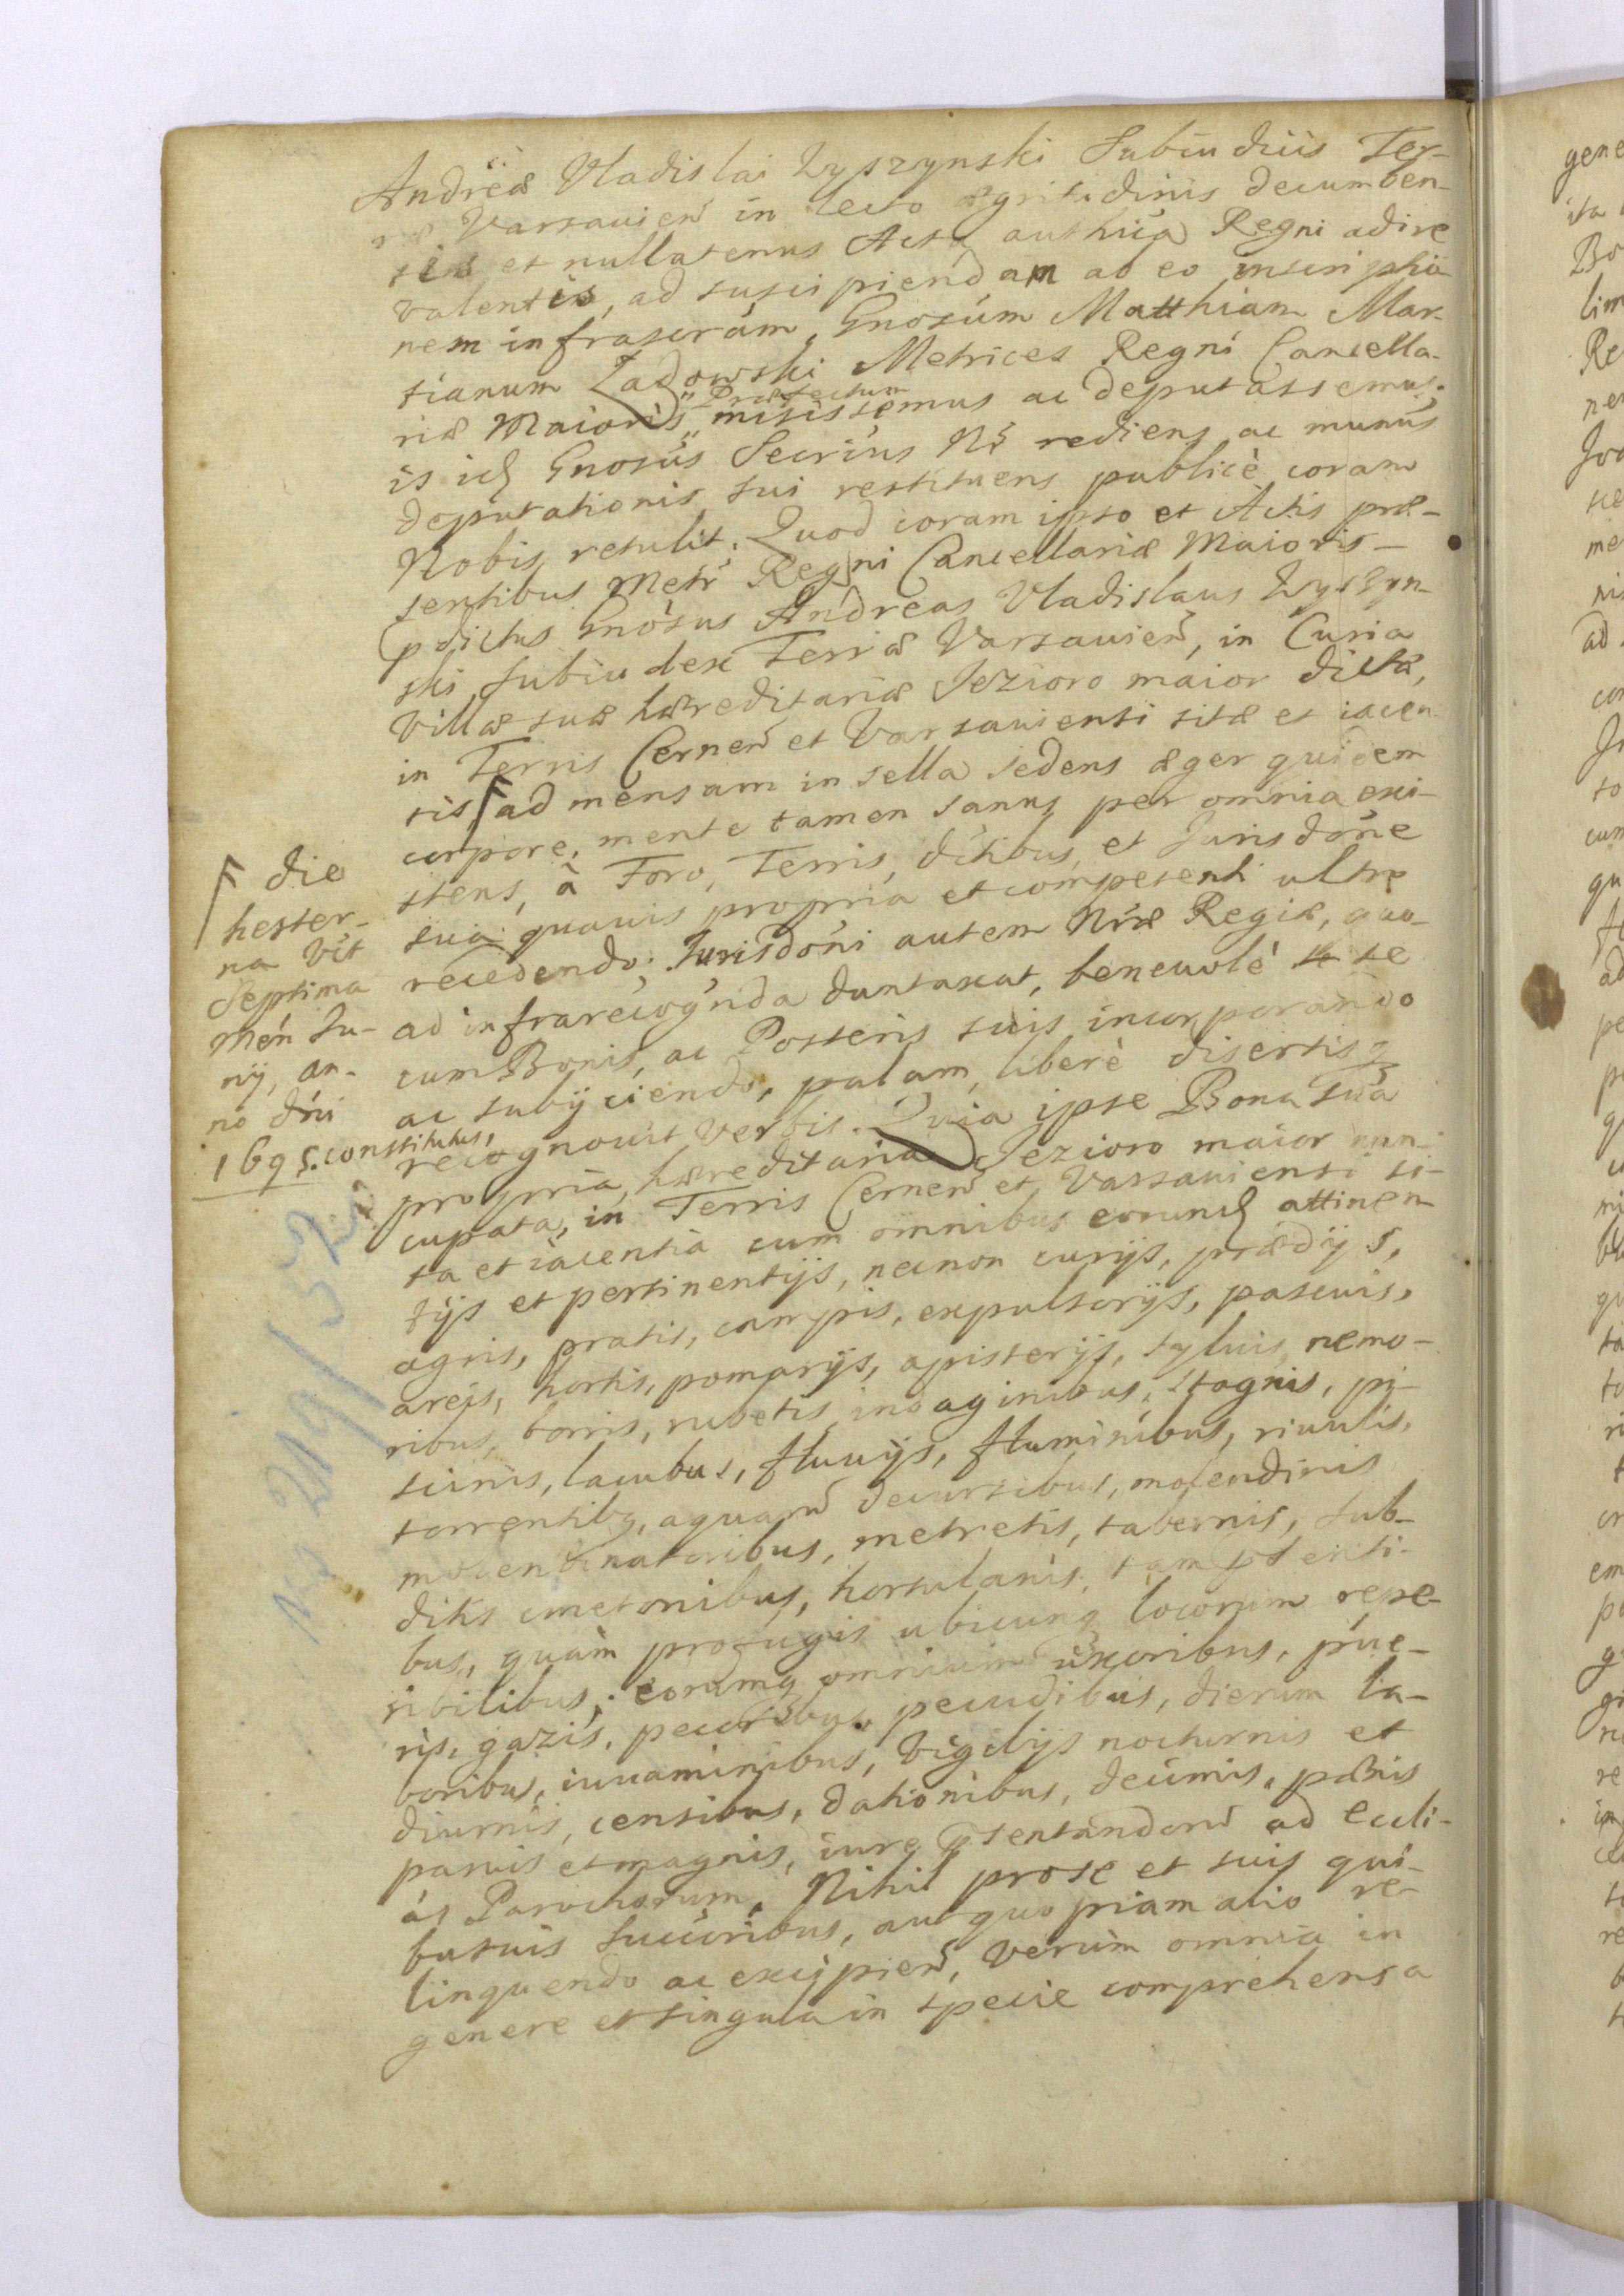 Andreæ Vladislai Łyszynski Subiudicis Ter-
ræ Varsauien̄ in lecto ægritudinis decumben-
tis et nullatenus Acta authca Regni adire
valentis, ad suscipiendam ab eo inscriptio
nem infrascrām, Gnosum Matthiam Mar-
tianum Ładowski Metrices Regni Cancella-
riæ Maioris „ Præfectum „ misissemus ac deputassemus;
is idē Gnosus Secrius Nr̄ rediens ac munus
deputationis sui restituens publicè coram
Nobis retulit. Quod coram ipso et Actis præ-
sentibus Metr̄ Regni Cancellariæ Maioris
p̄dictus Gnosus Andreas Vladislaus Łyszyn-
ski Subiudex Terræ Varsauien̄, in Curia
Villæ suæ hæreditariæ Jezioro maior dicta,
in Terris Cernen̄ et Varsauiensi sitæ et iacen-
tis ad mensam in sella sedens æger quidem
corpore, mente tamen sanus per omnia exi-
stens, à Foro, Terris, ditibus, et Jurisdōne
sua quauis propria et competenti ultro
recedendo; Jurisdōni autem Nr̄æ Regiæ, quo-
ad infrarecognda duntaxat, beneuolè se
cum Bonis, ac Posteris suis incorporando
ac subijciendo, palam, liberè disertisq
recognouit verbis. Quia ipse Bona sua
propria hæreditaria Jezioro maior nun-
cupata, in Terris Cernen̄ et Varsauiensi si-
ta et iacentia cum omnibus eorundē attinen-
tijs et pertinentijs, necnon curijs, prædijs,
agris, pratis, campis, expulsorijs, pascuis,
areis, hortis, pomarijs, apisterijs, syluis, nemo-
ribus, borris, rubetis, indaginibus, stagnis, pi-
scinis, lacubus, fluuijs, fluminibus, riuulis,
torrentibq, aquarū decursibus, molendinis
molendinatoribus, metretis, tabernis, sub-
ditis cmetonibus, hortulanis, tam p̄senti-
bus, quàm profugis ubicunq locorum repe-
ribilibus, eorumq omnium uxoribus, pue-
ris, gazis, pecoribus, pecudibus, dierum la-
boribus, iuuaminibus, vigilijs nocturnis et
diurnis, censibus, dationibus, decimis, pænis
paruis et magnis, iure p̄sentandorū ad Eccli-
as Parochorum, Nihil pro se et suis qui-
busuis succribus, aut quopiam alio re-
linquendo ac excipien̄, verùm omnia in
genere et singula in specie comprehensa
die
hester-
na vit
Septima
Men Ju-
nij, an-
no dn̄i
1695. constitutus,